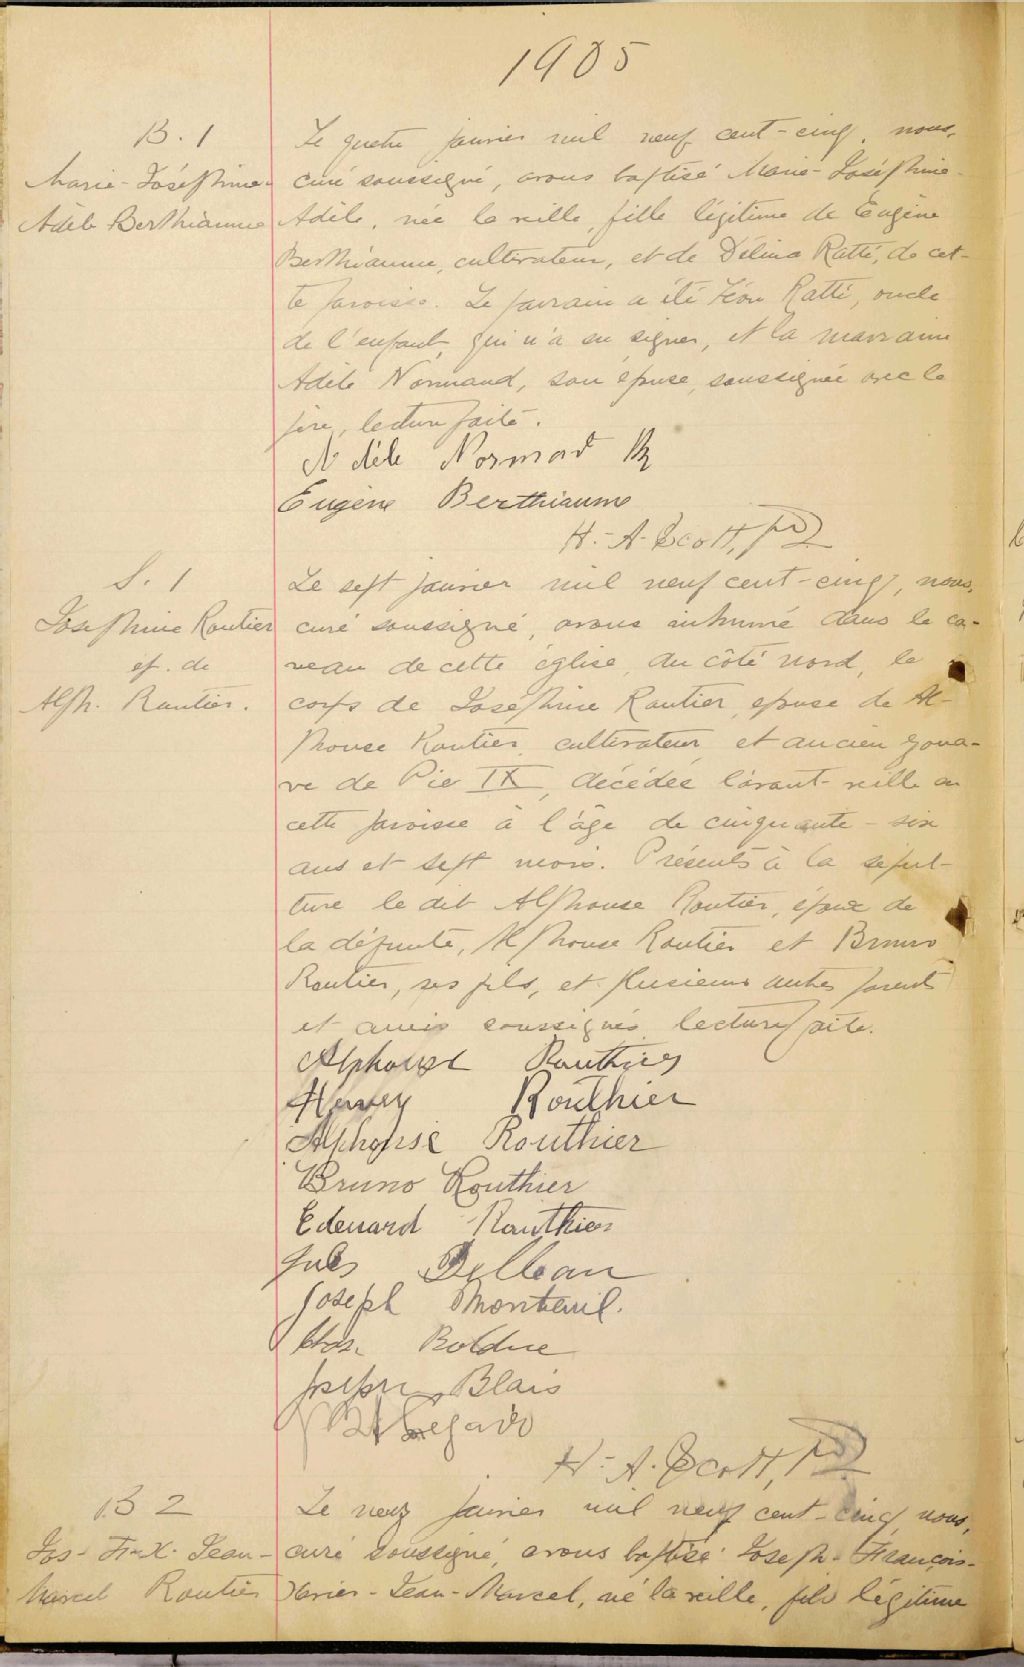 1905
B. 1
Marie-Joséphine-
Adèle Berthiaume
Le quatre janvier mil neuf cent-cinq, nous,
curé soussigné, avons baptisé Marie-Joséphine-
Adèle, née la veille, fille légitime de Eugène
Berthiaume, cultivateur, et de Délina Ratté, de cet-
te paroisse. Le parrain a été Léon Ratté, oncle
de l'enfant, qui n'a su signer, et la marraine
Adèle Normand, son épouse, soussignée avec le
père, lecture faite.
Adèle Normand
Eugène Berthiaume
H.-A. Scott, ptre
S. 1
Joséphine Routier
ép. de
Alph. Routier.
Le sept janvier mil neuf cent-cinq, nous,
curé soussigné, avons inhumé dans le ca-
veau de cette église, du côté nord, le
corps de Joséphine Routier, épouse de Al-
phonse Routier, cultivateur et ancien zoua-
ve de Pie IX, décédée l'avant-veille en
cette paroisse à l'âge de cinquante-six
ans et sept mois. Présents à la sépul-
ture le dit Alphonse Routier, époux de
la défunte, Alphonse Routier et Bruno
Routier, ses fils, et plusieurs autres parents
et amis soussignés, lecture faite.
Alphonse Routhier
Hervey Routhier
Alphonse Routhier
Bruno Routhier
Edouard Routhier
Jules Belleau
Joseph Montreuil.
Chs. Bolduc
Joseph Blais
Légaré
H.-A. Scott, ptre
B 2
Jos-F.-X. Jean-
Marcel Routier
Le neuf janvier mil neuf cent-cinq, nous,
curé soussigné, avons baptisé Joseph-François-
Xavier-Jean-Marcel, né la veille, fils légitime